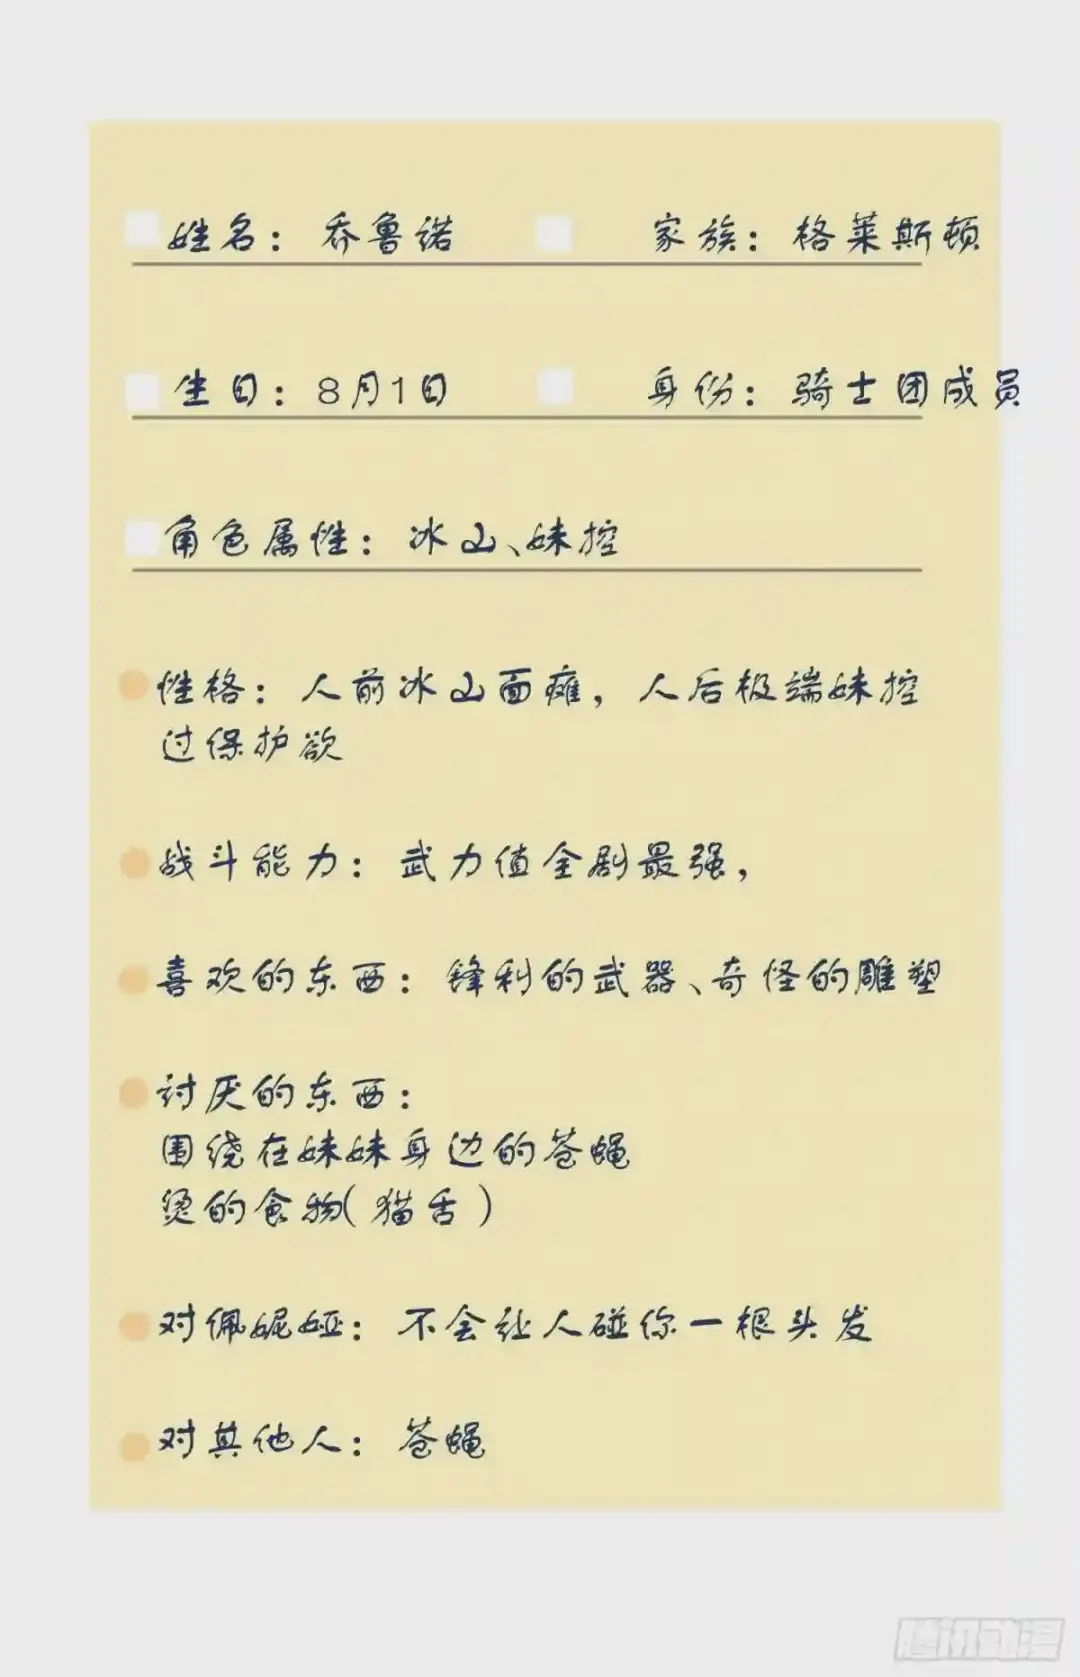 姓名：乔鲁诺 家族：格莱斯顿
生日：8月1日 身份：骑士团成员
角色属性：冰山、妹控
性格：人前冰山面瘫，人后极端妹控
过保护欲
战斗能力：武力值全剧最强，
喜欢的东西：锋利的武器、奇怪的雕塑
讨厌的东西：
围绕在妹妹身边的苍蝇
烫的食物（猫舌）
对佩妮娅：不会让人碰你一根头发
对其他人：苍蝇
腾讯动漫